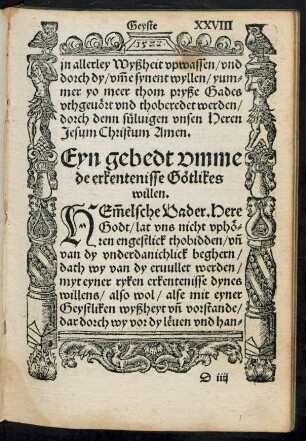 Geyste XXVIII
1522
jn allerley Wyßheit vpwassen / vnd
dorch dy / vm̃e synent wyllen / yum-
mer yo meer thom pryße Gades
vthgevöꝛt vnd thoberedet werden /
dorch denn süluigen vnsen Heren
Jesum Christum Amen.
Eyn gebedt vmme
de erkentenisse Götlikes
willen.
HEm̃elsche Vader. Here
Godt / lat vns nicht vphö-
ren engestlick thobidden / vñ
van dy vnderdanichlick beghern /
dath wy van dy eruullet werden /
myt eyner ryken erkentenisse dynes
willens / also wol / alse mit eyner
Geystliken wyßheyt vñ vorstande /
dar dorch wy vor dy leuen vnd han-
D iiij